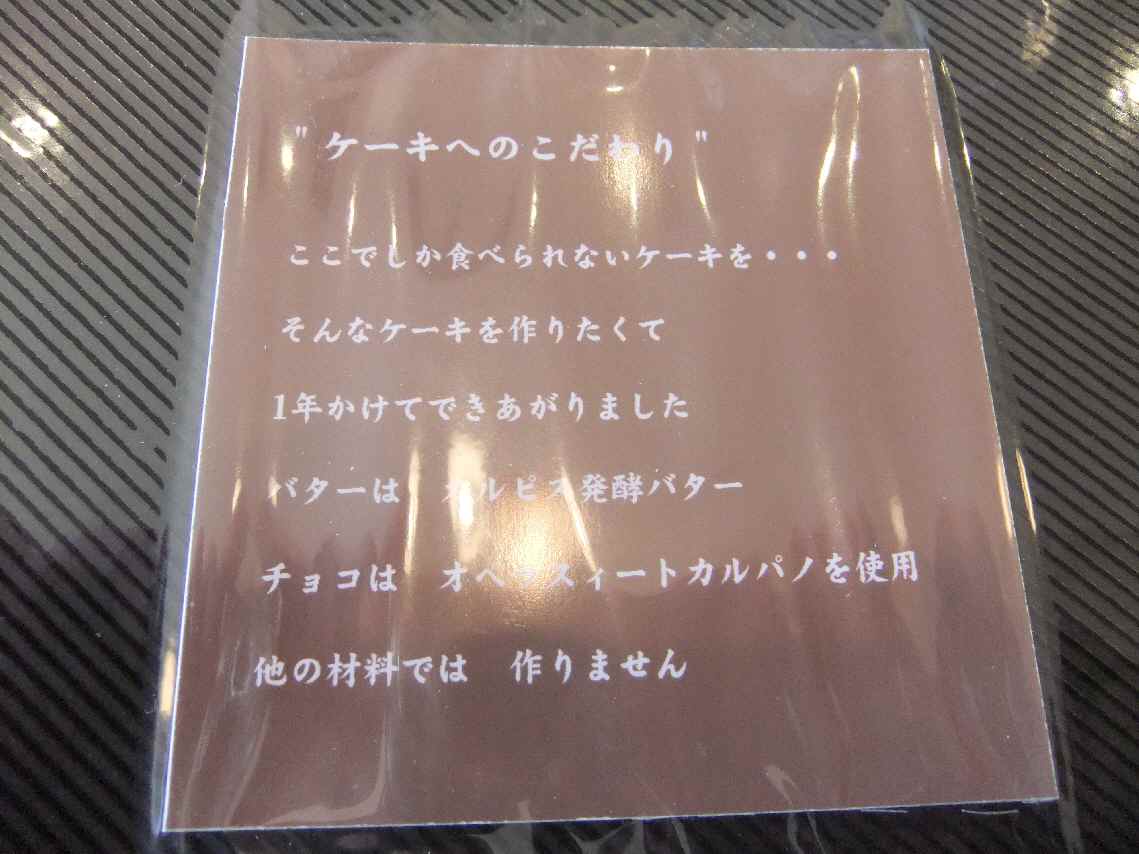 "ケーキへのこだわり"
ここでしか食べられないケーキを・・・
そんなケーキを作りたくて
1年かけてできあがりました
バターは　カルピス発酵バター
チョコは　オペラスィートカルパノを使用
他の材料では　作りません